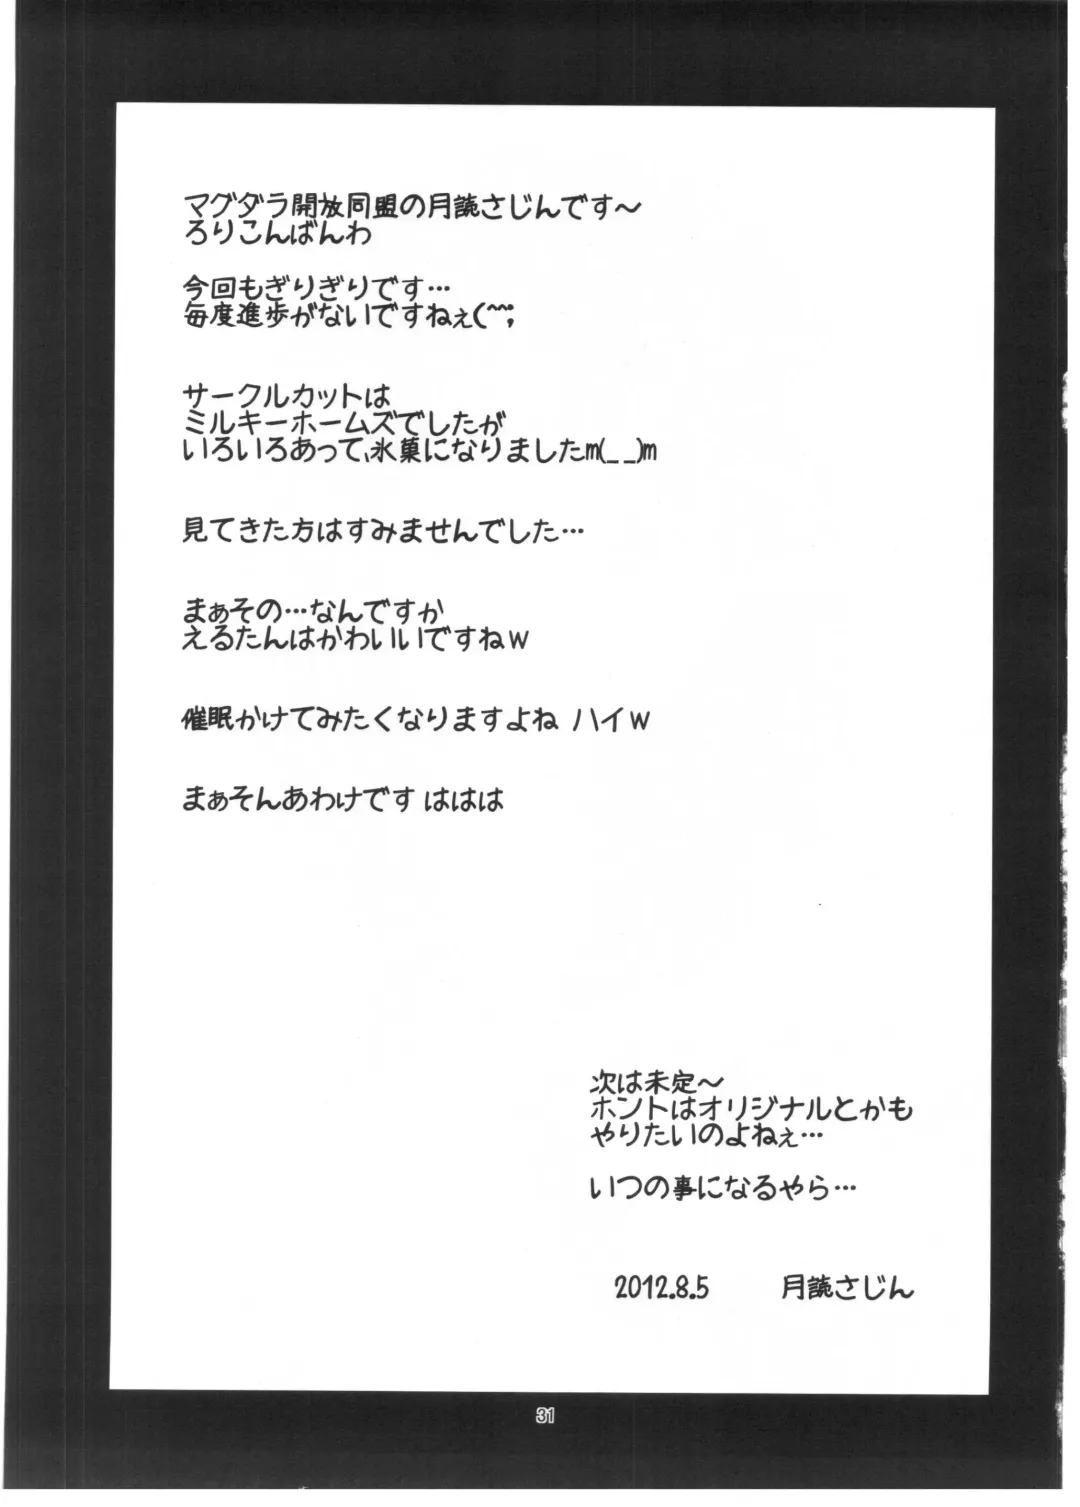 マグダラ開放同盟の月読さじんです～
ろりこんばんわ
今回もぎりぎりです…
毎度進歩がないですねぇ(^^;
サークルカットは
ミルキーホームズでしたが
いろいろあって、氷菓になりましたm(_ _)m
見てきた方はすみませんでした…
まぁその…なんですか
えるたんはかわいいですねw
催眠かけてみたくなりますよね ハイw
まぁそんあわけです ははは
次は未定～
ホントはオリジナルとかも
やりたいのよねぇ…
いつの事になるやら…
2012.8.5 月読さじん
31